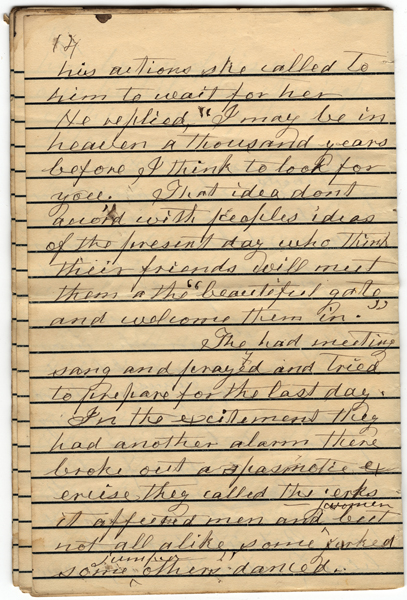 14
his actions she called to
him to wait for her
He replied, "I may be in
heaven a thousand years
before I think to look for
you. That idea dont
accord with peoples ideas
of the present day who think
their friends will meet
them a the "beautiful gate
and welcome them in."
The had meeting
sang and prayed and tried
to prepare for the last day.
In the excitement they
had another alarm there
broke out a spasmotic ex
ercise they called the jerks
it affected men and women but
not all alike some jerked
some jumped others danced.